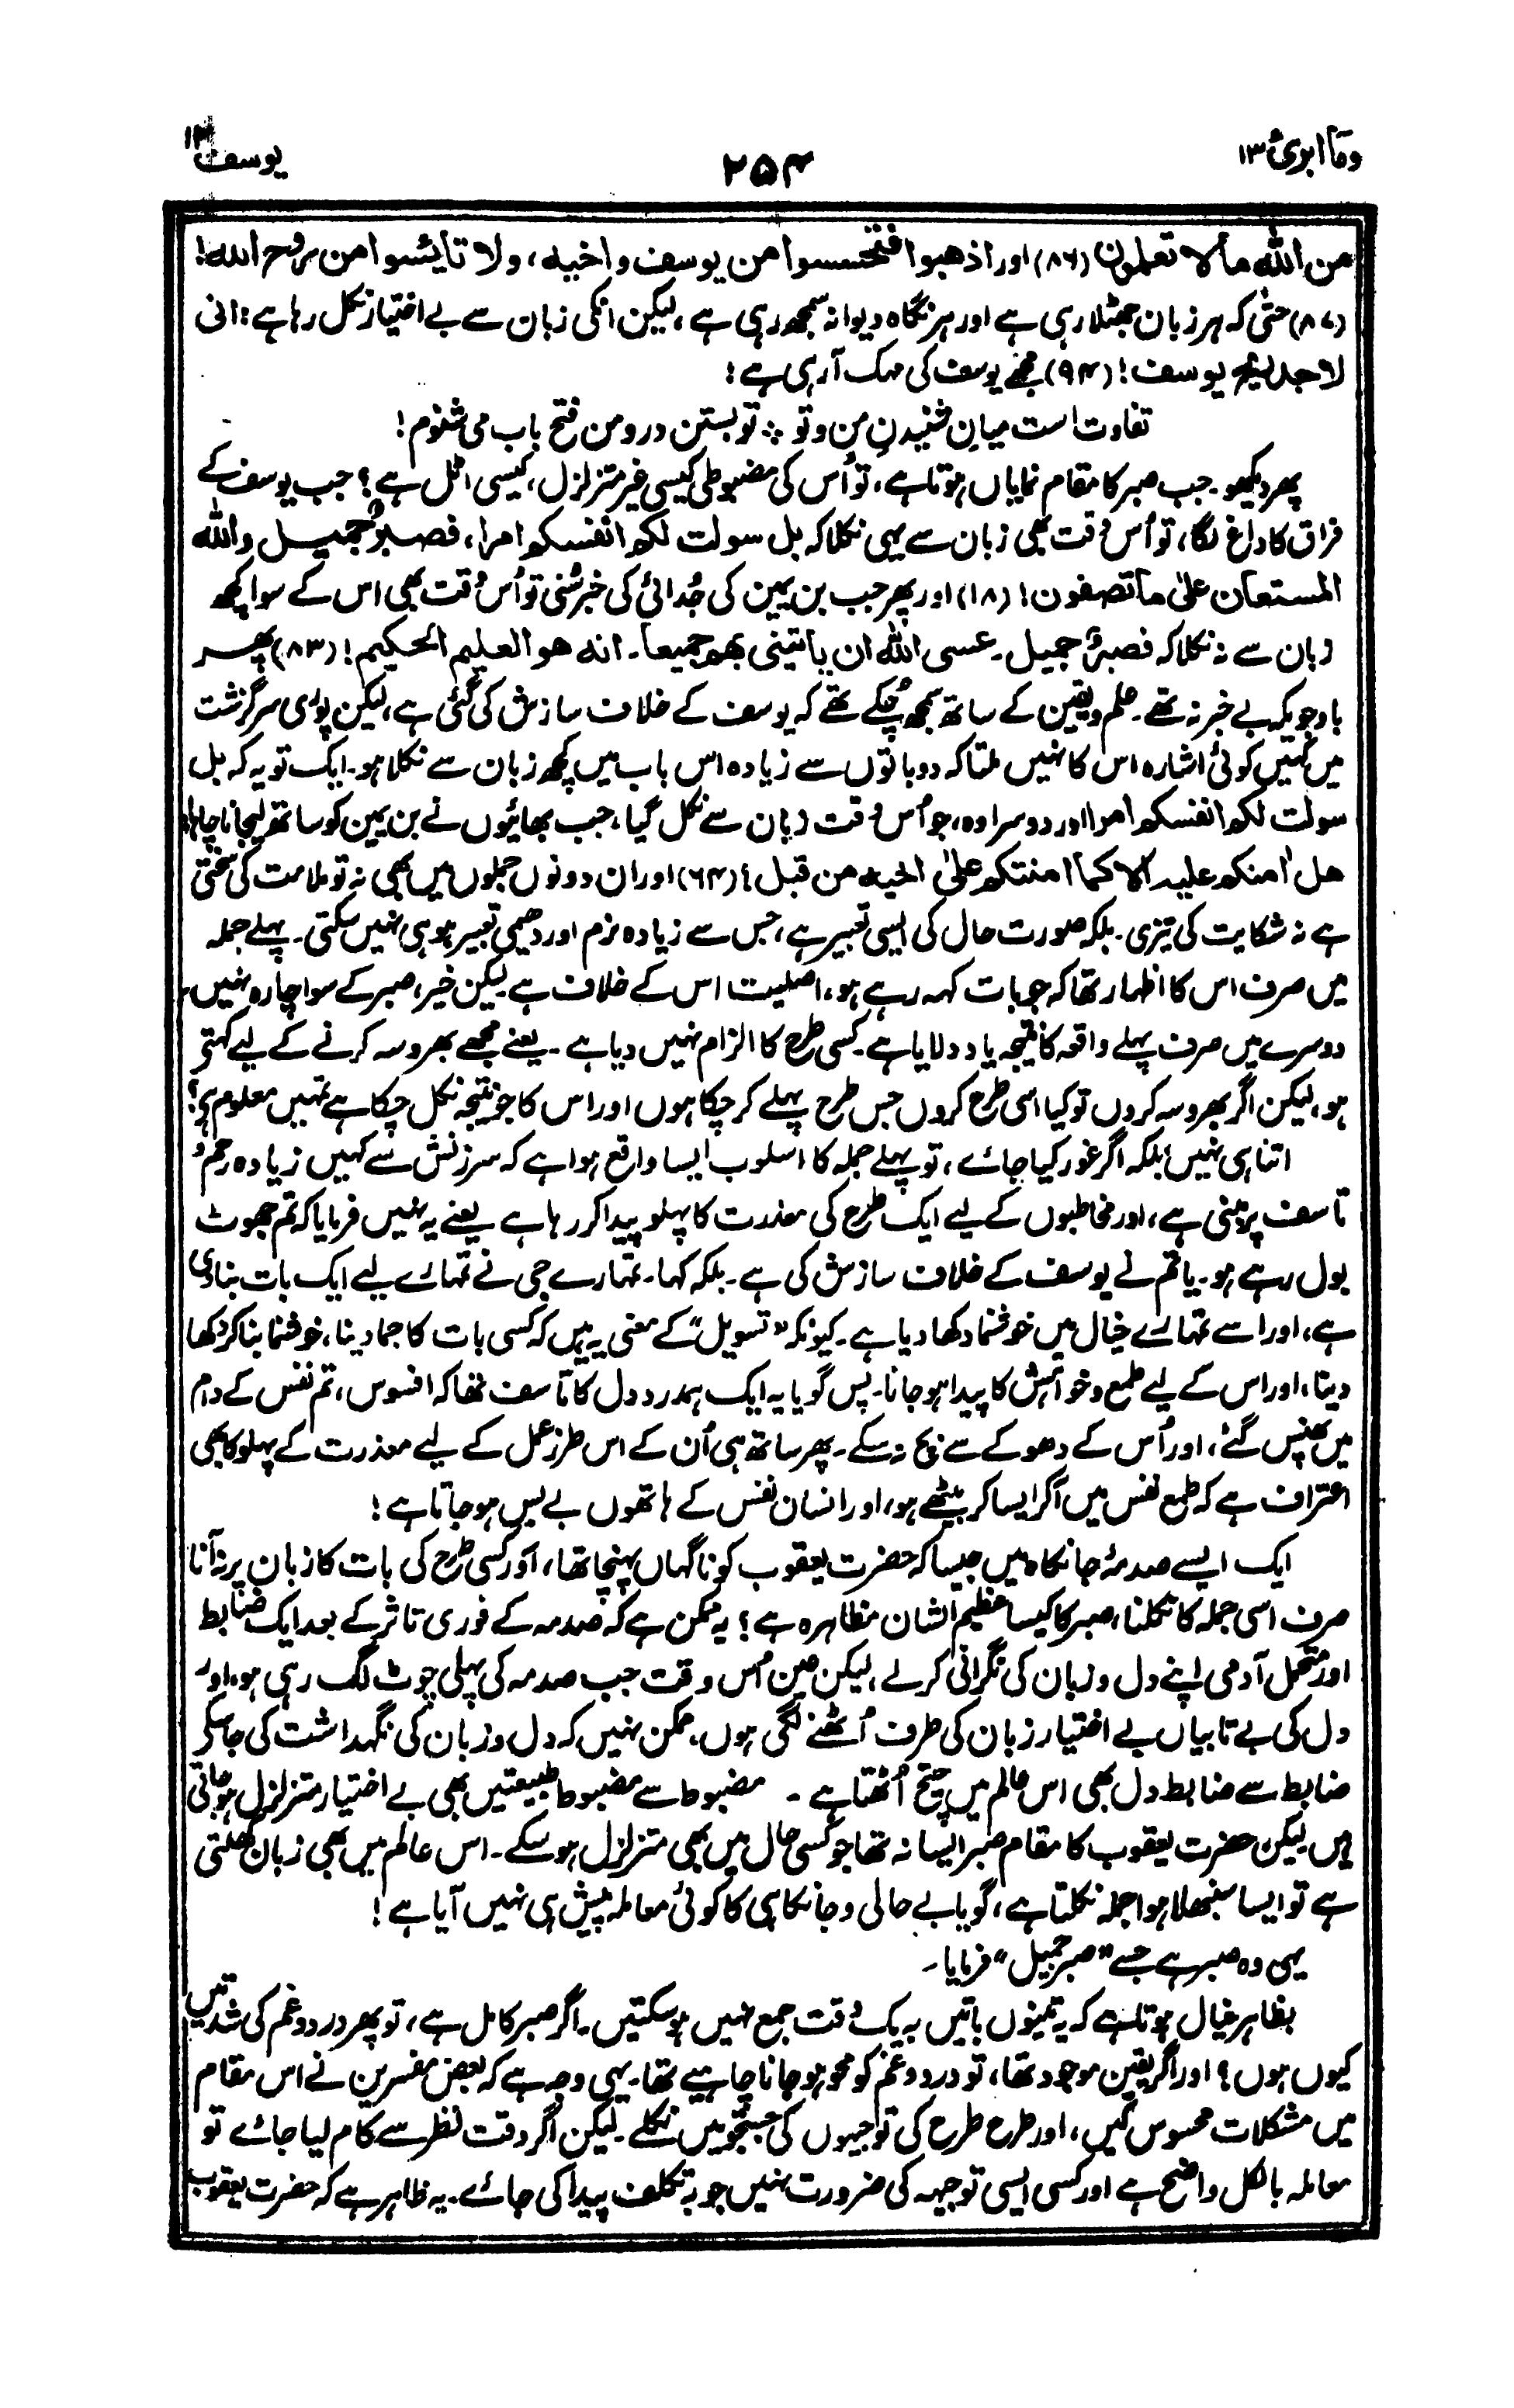 وما ابرئ ۱۳
۲۵۴
یوسف ۱۲
من الله مالا تعلمون (۸۶) اور اذهبوا فتحسسوا من یوسف واخیه، ولا تائیسوا من روح الله!
(۸۷) حتیٰ کہ ہر زبان جھٹلا رہی ہے اور ہر نگاہ دیوانہ سمجھ رہی ہے، لیکن انکی زبان سے بے اختیار نکل رہا ہے: انی
لاجد ریح یوسف! (۹۴) مجھے یوسف کی مہک آرہی ہے!
تفاوت است میانِ شنیدنِ من وتو ؞ تو بستن در و من فتح باب می شنوم!
پھر دیکھو۔ جب صبر کا مقام نمایاں ہوتا ہے، تو اُس کی مضبوطی کیسی غیر متزلزل، کیسی اٹل ہے؟ جب یوسف کے
فراق کا داغ لگا، تو اُس وقت بھی زبان سے یہی نکلا کہ بل سولت لکم انفسکم امرا، فصبرٌ جمیل والله
المستعان علیٰ ما تصفون! (۱۸) اور پھر جب بن یمین کی جُدائی کی خبر سُنی تو اُس وقت بھی اس کے سوا کچھ
زبان سے نہ نکلا کہ فصبرٌ جمیل۔ عسی الله ان یاتینی بهم جمیعا۔ انه هو العلیم الحکیم! (۸۳) پھر
باوجودیکہ بے خبر نہ تھے۔ علم و یقین کے ساتھ سمجھ چُکے تھے کہ یوسف کے خلاف سازش کی گئی ہے، لیکن پوری سرگزشت
میں کہیں کوئی اشارہ اس کا نہیں ملتا کہ دو باتوں سے زیادہ اس باب میں کچھ زبان سے نکلا ہو۔ ایک تو یہ کہ بل
سولت لکم انفسکم امرا اور دوسرا وہ، جو اُس وقت زبان سے نکل گیا، جب بھائیوں نے بن یمین کو ساتھ لیجانا چاہا:
هل اٰمنکم علیه الا کما امنتکم علیٰ اخیه من قبل؟ (۶۴) اور ان دونوں جملوں میں بھی نہ تو ملامت کی سختی
ہے نہ شکایت کی تیزی۔ بلکہ صورت حال کی ایسی تعبیر ہے، جس سے زیادہ نرم اور دھیمی تعبیر ہو ہی نہیں سکتی۔ پہلے جملہ
میں صرف اس کا اظہار تھا کہ جو بات کہہ رہے ہو، اصلیت اس کے خلاف ہے۔ لیکن خیر، صبر کے سوا چارہ نہیں۔
دوسرے میں صرف پہلے واقعہ کا نتیجہ یاد دلایا ہے۔ کسی طرح کا الزام نہیں دیا ہے۔ یعنے مجھے بھروسہ کرنے کے لیے کہتے
ہو، لیکن اگر بھروسہ کروں تو کیا اسی طرح کروں جس طرح پہلے کر چکا ہوں اور اس کا جو نتیجہ نکل چکا ہے تمہیں معلوم ہے؟
اتنا ہی نہیں بلکہ اگر غور کیا جائے، تو پہلے جملہ کا اسلوب ایسا واقع ہوا ہے کہ سرزنش سے کہیں زیادہ رحم و
تاسف پر مبنی ہے، اور مخاطبوں کے لیے ایک طرح کی معذرت کا پہلو پیدا کر رہا ہے۔ یعنے یہ نہیں فرمایا کہ تم جھوٹ
بول رہے ہو۔ یا تم نے یوسف کے خلاف سازش کی ہے۔ بلکہ کہا۔ تمہارے جی نے تمہارے لیے ایک بات بنا دی
ہے، اور اسے تمہارے خیال میں خوشنما دکھا دیا ہے۔ کیونکہ "تسویل" کے معنی یہ ہیں کہ کسی بات کا جما دینا، خوشنما بنا کر دکھا
دینا، اور اس کے لیے طمع و خواہش کا پیدا ہو جانا۔ پس گویا یہ ایک ہمدرد دل کا تاسف تھا کہ افسوس، تم نفس کے دام
میں پھنس گئے، اور اُس کے دھوکے سے بچ نہ سکے۔ پھر ساتھ ہی اُن کے اس طرز عمل کے لیے معذرت کے پہلو کا بھی
اعتراف ہے کہ طمع نفس میں آکر ایسا کر بیٹھے ہو، اور انسان نفس کے ہاتھوں بے بس ہو جاتا ہے!
ایک ایسے صدمۂ جانکاہ میں جیسا کہ حضرت یعقوب کو ناگہاں پہنچا تھا، اَور کسی طرح کی بات کا زبان پر نہ آنا
صرف اسی جملہ کا نکلنا، صبر کا کیسا عظیم الشان مظاہرہ ہے؟ یہ ممکن ہے کہ صدمہ کے فوری تاثر کے بعد ایک ضابط
اور متحمل آدمی اپنے دل و زبان کی نگرانی کرلے، لیکن عین اُس وقت جب صدمہ کی پہلی چوٹ لگ رہی ہو، اور
دل کی بے تابیاں بے اختیار زبان کی طرف اُٹھنے لگی ہوں، ممکن نہیں کہ دل و زبان کی نگہداشت کی جاسکے
ضابط سے ضابط دل بھی اس عالم میں چیخ اُٹھتا ہے۔ مضبوط سے مضبوط طبیعتیں بھی بے اختیار متزلزل ہو جاتی
ہیں لیکن حضرت یعقوب کا مقام صبر ایسا نہ تھا جو کسی حال میں بھی متزلزل ہو سکے۔ اس عالم میں بھی زبان کھلتی
ہے تو ایسا سنبھلا ہوا جملہ نکلتا ہے، گویا بے حالی و جانکاہی کا کوئی معاملہ پیش ہی نہیں آیا ہے!
یہی وہ صبر ہے جسے "صبر جمیل" فرمایا۔
بظاہر خیال ہوتا ہے کہ یہ تینوں باتیں بہ یک وقت جمع نہیں ہو سکتیں۔ اگر صبر کامل ہے، تو پھر درد و غم کی شدتیں
کیوں ہوں؟ اور اگر یقین موجود تھا، تو درد و غم کو محو ہو جانا چاہیے تھا۔ یہی وجہ ہے کہ بعض مفسرین نے اس مقام
میں مشکلات محسوس کیں، اور طرح طرح کی توجیہوں کی جستجو میں نکلے۔ لیکن اگر دقت نظر سے کام لیا جائے تو
معاملہ بالکل واضح ہے اور کسی ایسی توجیہہ کی ضرورت نہیں جو بہ تکلف پیدا کی جائے۔ یہ ظاہر ہے کہ حضرت یعقوب